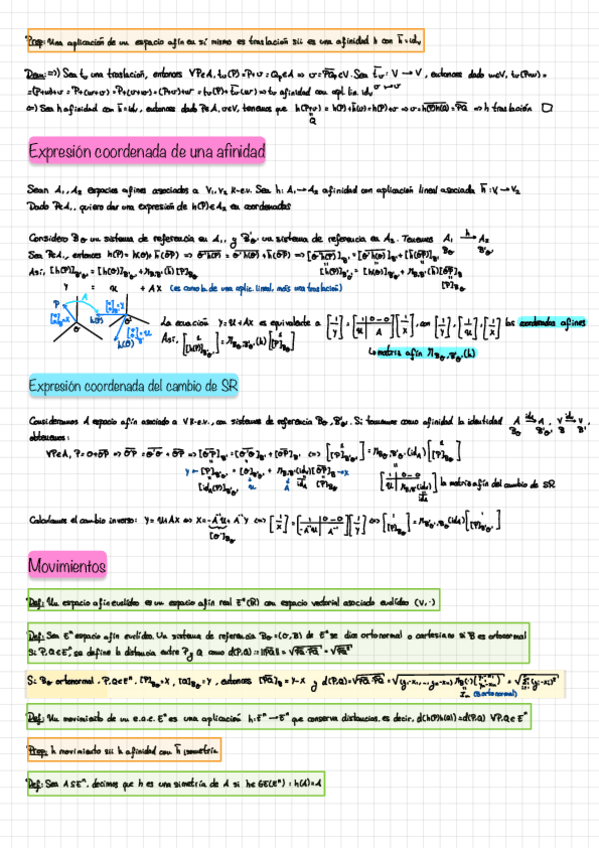 Prop: Una aplicación de un espacio afín en sí mismo es traslación sii es una afinidad h con h̄ = id_V
Dem: ⇒) Sea t_v una traslación, entonces ∀P∈A, t_v(P) = P+v = Q_P∈A ⇒ v = PQ_P∈V. Sea t̄_v: V → V, entonces dado w∈V, t_v(P+w) =
=(P+w)+v = P+(w+v) = P+(v+w) = (P+v)+w = t_v(P)+t̄_v(w) ⇒ t_v afinidad con apl. lin. id_V
⇐) Sea h afinidad con h̄ = id_V, entonces dado P∈A, v∈V, tenemos que h(P+v) = h(P)+h̄(v) = h(P)+v ⇒ h traslación □
Expresión coordenada de una afinidad
Sean A₁, A₂ espacios afines asociados a V₁, V₂ K-e.v. Sea h: A₁→A₂ afinidad con aplicación lineal asociada h̄: V₁→V₂
Dado P∈A₁, quiero dar una expresión de h(P)∈A₂ en coordenadas
Considero B_O un sistema de referencia en A₁, y B'_O' un sistema de referencia en A₂. Tenemos A₁ →h A₂
Sea P∈A₁, entonces h(P) = h(O)+h̄(OP) ⇒ O'h(P) = O'h(O)+h̄(OP) ⇒ [O'h(P)]_B' = [O'h(O)]_B' + [h̄(OP)]_B'
Así, [h(P)]_B'O' = [h(O)]_B'O' + M_B,B'(h̄)[P]_BO
y = u + Ax (es como la de una aplic. lineal, más una traslación)
La ecuación y = u + Ax es equivalente a [1 / y] = [1 | 0 ⋯ 0 / u | A] [1 / x], con [1 / y], [1 / u], [1 / x] las coordenadas afines
Así, [1 / [h(P)]_B'O'] = M_BO,B'O'(h) [1 / [P]_BO]
↳ matriz afín M_BO,B'O'(h)
Expresión coordenada del cambio de SR
Consideramos A espacio afín asociado a V K-e.v., con sistemas de referencia B_O, B'_O'. Si tomamos como afinidad la identidad
obtenemos:
∀P∈A, P = O+OP ⇒ O'P = O'O + OP ⇒ [O'P]_B' = [O'O]_B' + [OP]_B' ⇔ [1 / [P]_B'O'] = M_BO,B'O'(id_A) [1 / [P]_BO]
y ← [P]_B'O' = [O]_B'O' + M_B,B'(id_V)[OP]_B → x
la matriz afín del cambio de SR
Calculamos el cambio inverso: y = u + Ax ⇔ x = -A⁻¹u + A⁻¹y ⇔ [1 / x] = [1 | 0 ⋯ 0 / -A⁻¹u | A⁻¹] [1 / y] ⇔ [1 / [P]_BO] = M_B'O',BO(id_A) [1 / [P]_B'O']
Movimientos
Def: Un espacio afín euclídeo es un espacio afín real Eⁿ(R) con espacio vectorial asociado euclídeo (V, ·)
Def: Sea Eⁿ espacio afín euclídeo. Un sistema de referencia B_O = (O, B) de Eⁿ se dice ortonormal o cartesiano si B es ortonormal
Si P, Q∈Eⁿ, se define la distancia entre P y Q como d(P,Q) = ‖PQ‖ = √(PQ·PQ) = √PQ²
Si B_O ortonormal, P,Q∈Eⁿ, [P]_BO = x, [Q]_BO = y, entonces [PQ]_B = y-x y d(P,Q) = √(PQ·PQ)
(B ortonormal)
Def: Un movimiento de un e.a.e. Eⁿ es una aplicación h: Eⁿ→Eⁿ que conserva distancias, es decir, d(h(P)h(Q)) = d(P,Q) ∀P,Q∈Eⁿ
Prop: h movimiento sii h afinidad con h̄ isometría
Def: Sea A⊆Eⁿ, decimos que h es una simetría de A si h∈GE(Eⁿ) : h(A)=A